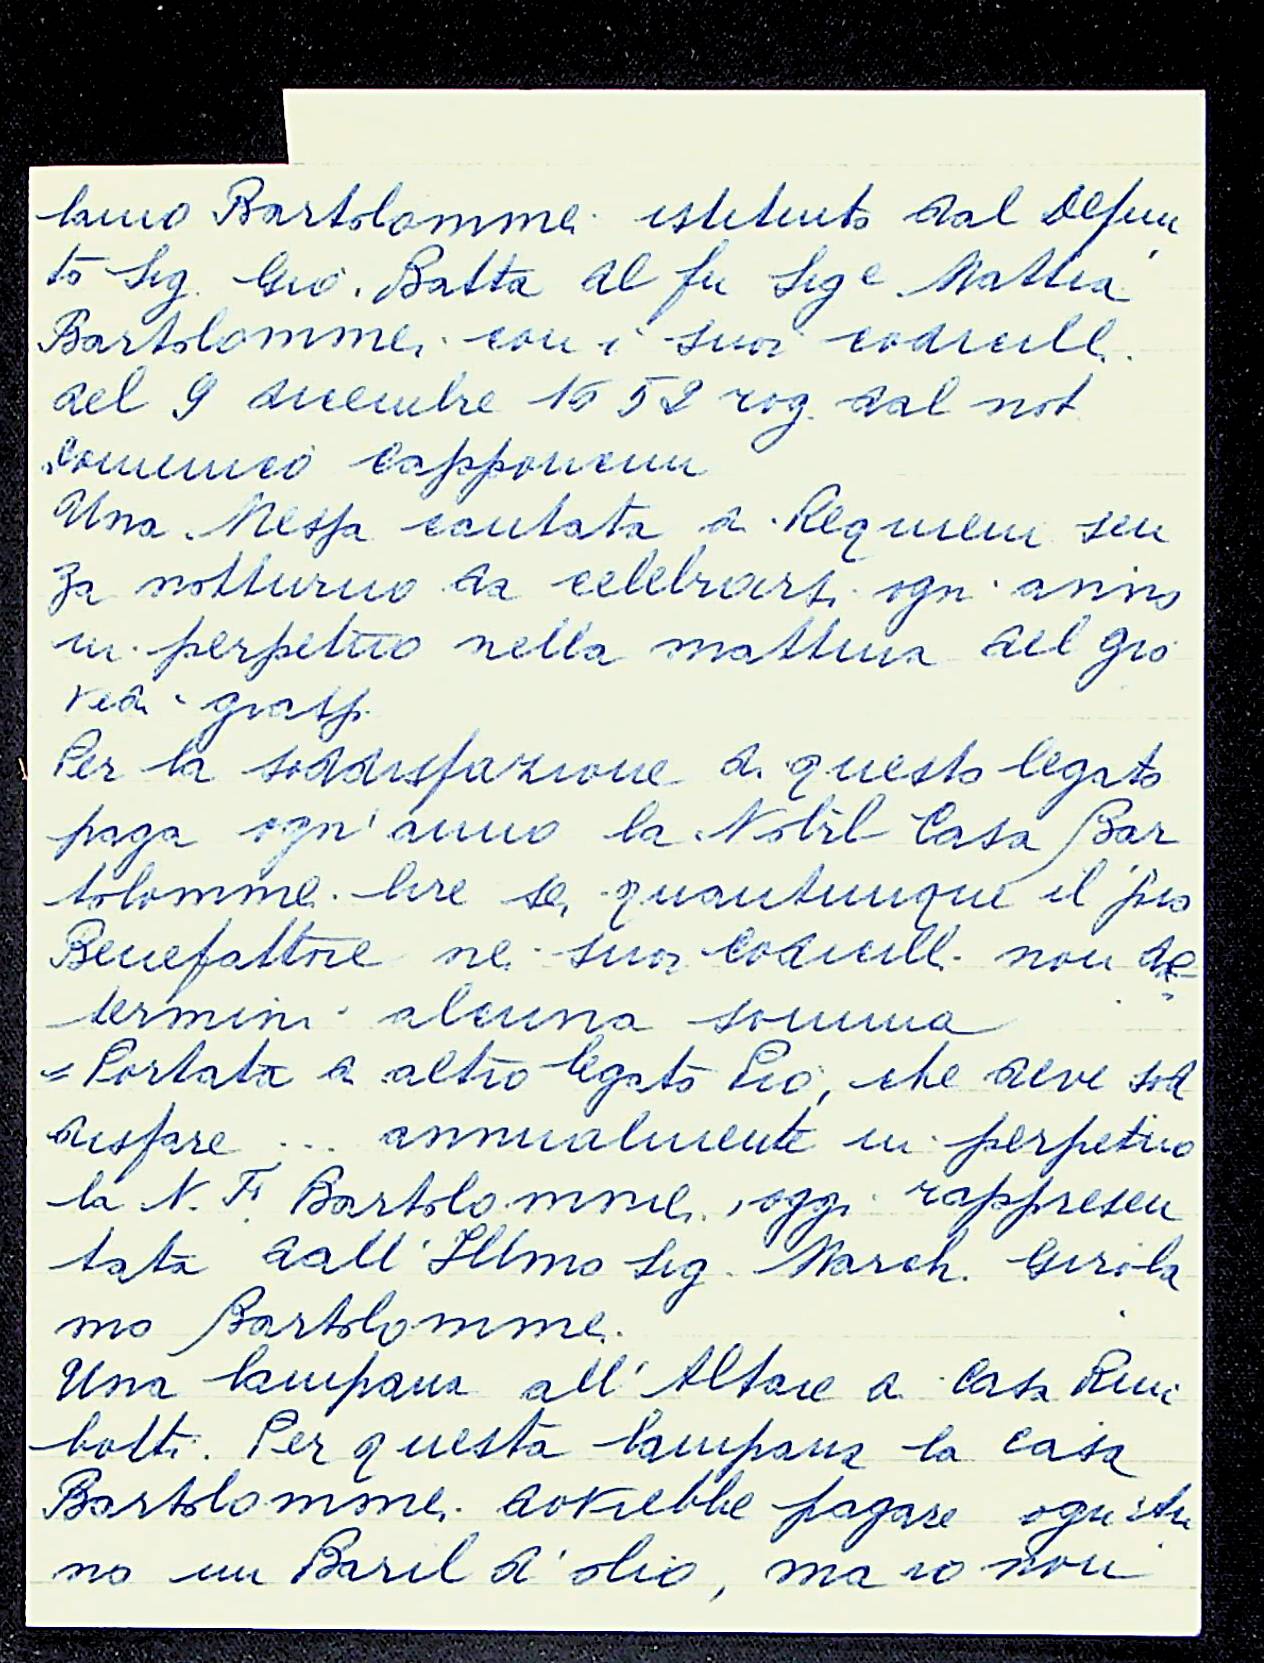 lamo Bartolommei istituito dal Defun
to Sig. Gio. Batta del fu Sige Mattia
Bartolommei con i suoi codicilli
del 9 dicembre 1652 rog. dal not
Domenico Capponcini
Una Messa cantata di Requiem sen
za notturno da celebrarsi ogni anno
in perpetuo nella mattina del gio
vedì grasso
Per la soddisfazione di questo legato
paga ogn'anno la Nobil Casa Bar
tolommei lire sei quantunque il pio
Benefattore nei suoi Codicilli non de
termini alcuna somma
= Portata di altro legato Pio, che deve sod
disfare ... annualmente in perpetuo
la N. F. Bartolommei, oggi rappresen
tata dall'Illmo Sig. March. Girola
mo Bartolommei.
Una lampana all'Altare di Casa Rim
botti. Per questa lampana la casa
Bartolommei dovrebbe pagare ogni An
no un Baril d'olio, ma io non